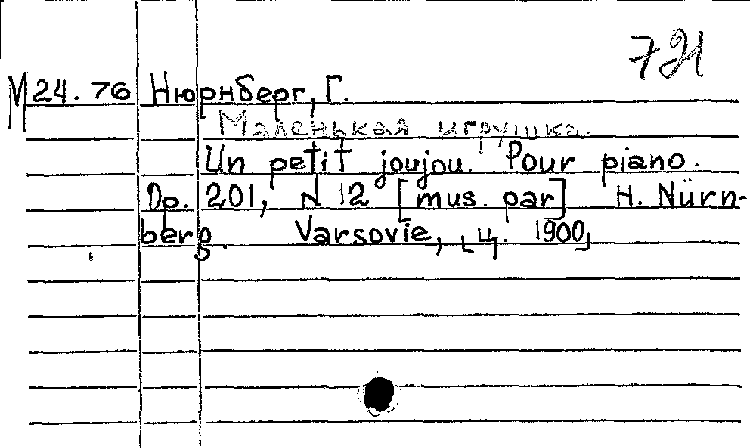 721
М 24.76 Нюрнберг, Г.
Маленькая игрушка.
Un petit joujou. Pour piano.
Op. 201, N 12 [mus. par] H. Nürn-
berg. Varsovie, [ц. 1900]